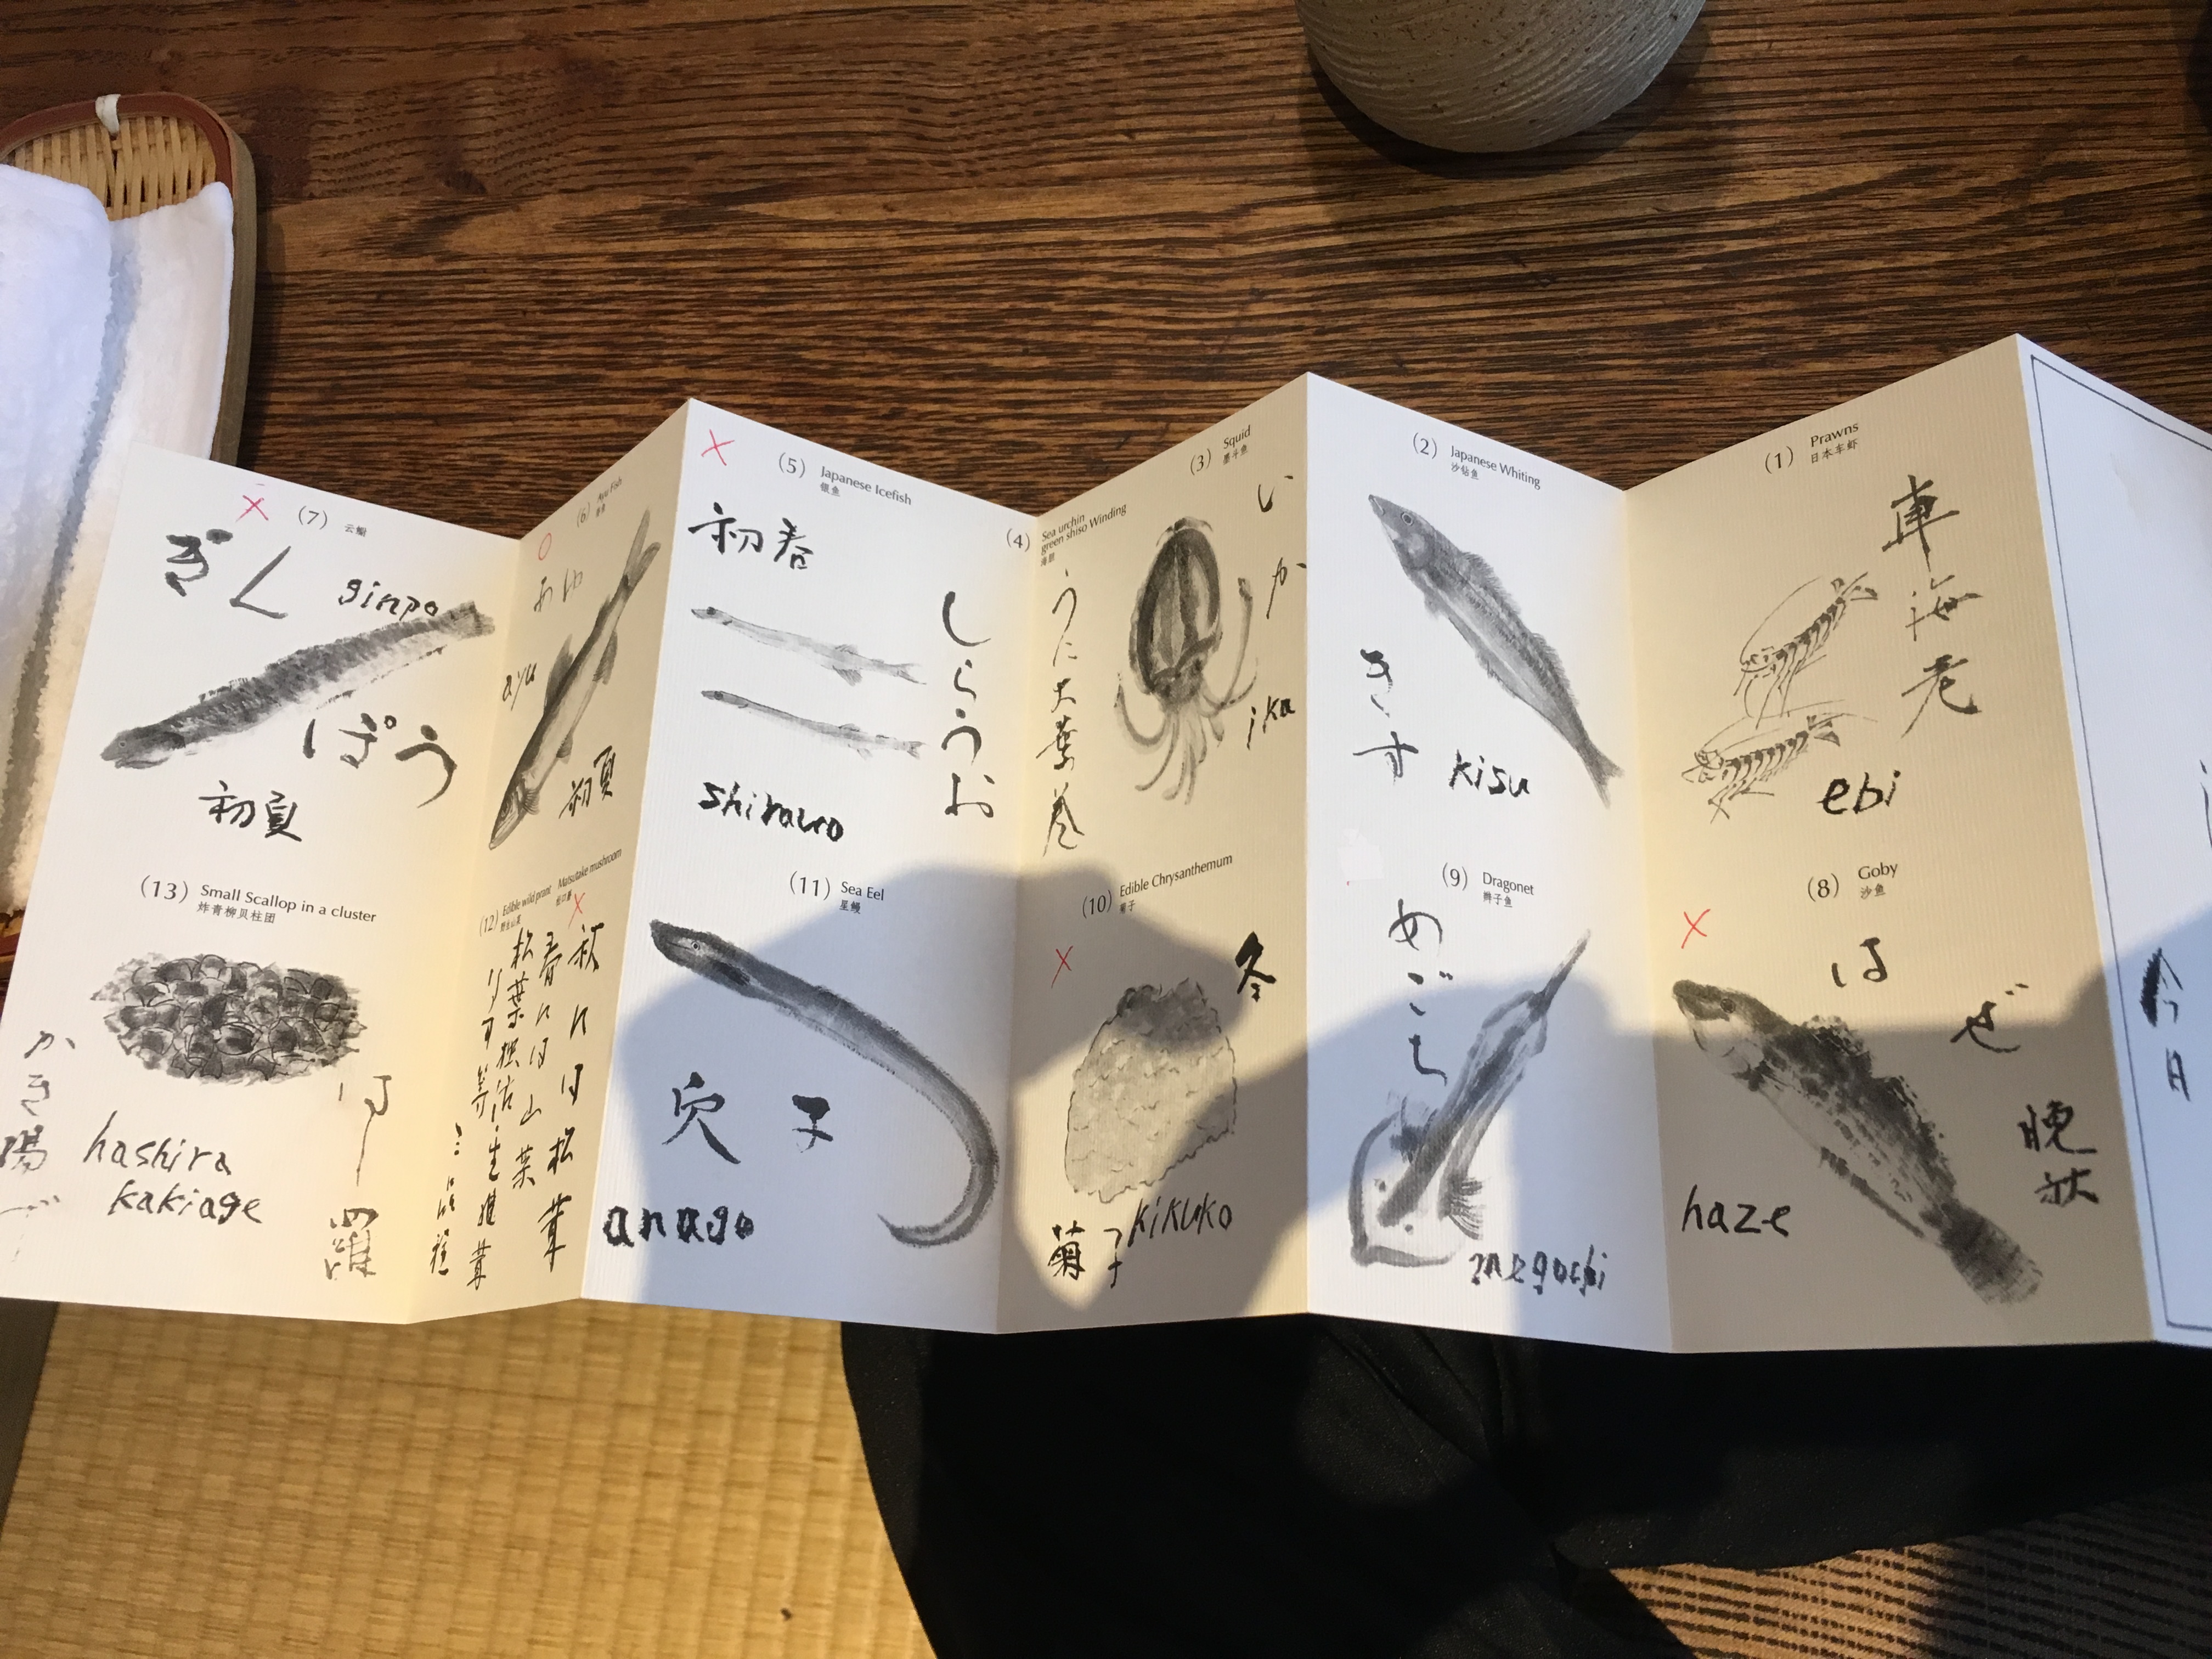 (1) Prawns
日本车虾
車海老
ebi
(2) Japanese Whiting
沙钻鱼
きす
kisu
(3) Squid
墨斗鱼
いか
ika
(4) Sea urchin
green shiso Winding
海胆
うに大葉巻
(5) Japanese Icefish
银鱼
初春
しらうお
shirauo
(6) Ayu Fish
あゆ
ayu
初夏
(7) 云鳚
ぎん
ginpo
ぽう
初夏
(8) Goby
沙鱼
はぜ
晩秋
haze
(9) Dragonet
めごち
megochi
(10) Edible Chrysanthemum
菊子
冬
菊子
kikuko
(11) Sea Eel
星鳗
穴子
anago
(12) Edible wild prant Matsutake mushroom
秋には松茸
春には山菜
(13) Small Scallop in a cluster
炸青柳贝柱团
はしら
かき揚げ
hashira
kakiage
今月